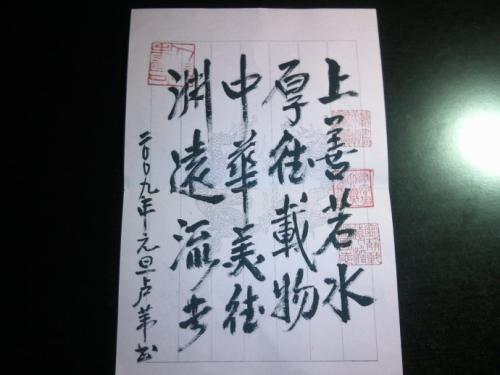 上善若水
厚德載物
中華美德
渊遠流长
二〇〇九年元旦卢书